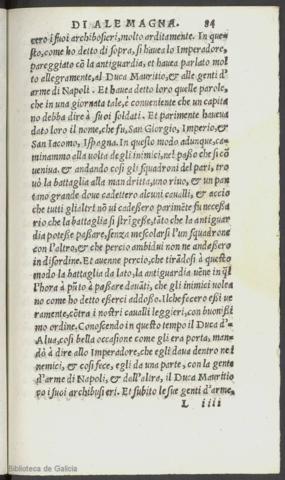 DI ALEMAGNA. 84
cero i suoi archibusieri, molto arditamente. In que-
sto, come ho detto di sopra, si hauea lo Imperadore,
pareggiato cō la antiguardia, et hauea parlato mol
to allegramente, al Duca Mauritio, & alle genti d'
arme di Napoli. Et hauea detto loro quelle parole,
che in una giornata tale, è conueniente che un capita
no debba dire à suoi soldati. Et parimente haueua
dato loro il nome, che fu, San Giorgio, Imperio, &
San Iacomo, Ispagna. In questo modo adunque, ca-
minammo alla uolta degli inimici, nel passo che si cō
ueniua. & andando cosi gli squadroni del pari, tro
uò la battaglia alla man dritta, uno riuo, & un pan
tano grande doue cadettero alcuni caualli, & accio
che tutti gli altri nō ui cadessero parimēte fu necessa
rio che la battaglia si strigesse, tāto che la antiguar
dia potesse passare, senza mescolarsi l'un squadrone
con l'altro, & che percio ambidui non ne andassero
in disordine. Et auenne percio, che tirādosi à questo
modo la battaglia da lato, la antiguardia uēne in q̄l
l'hora à pūto à passare dauāti, che gli inimici uolea
no come ho detto esserci addosso. Ilche fecero essi ue
ramente, cōtra i nostri caualli leggieri, con buonissi
mo ordine. Conoscendo in questo tempo il Duca d'
Alua, cosi bella occasione come gli era porta, man-
dò à dire allo Imperadore, che egli daua dentro ne i
nemici, & cosi fece, egli da una parte, con la gente
d'arme di Napoli, & dall'altra, il Duca Mauritio
co i suoi archibusieri. Et subito le sue genti d'arme,
L iiii
Biblioteca de Galicia